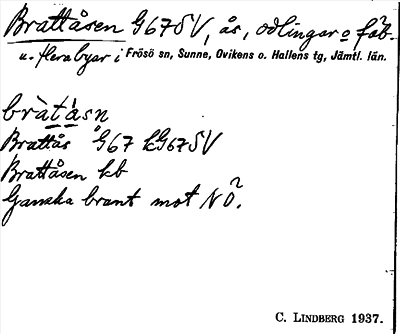 Brattåsen G67SV, ås, odlingar o fäb.
u. flera byar i Frösö sn, Sunne, Ovikens o. Hallens tg, Jämtl. län.
bràtåsn
Brattås G67 kG67SV
Brattåsen kb
Ganska brant mot NO.
C. LINDBERG 1937.